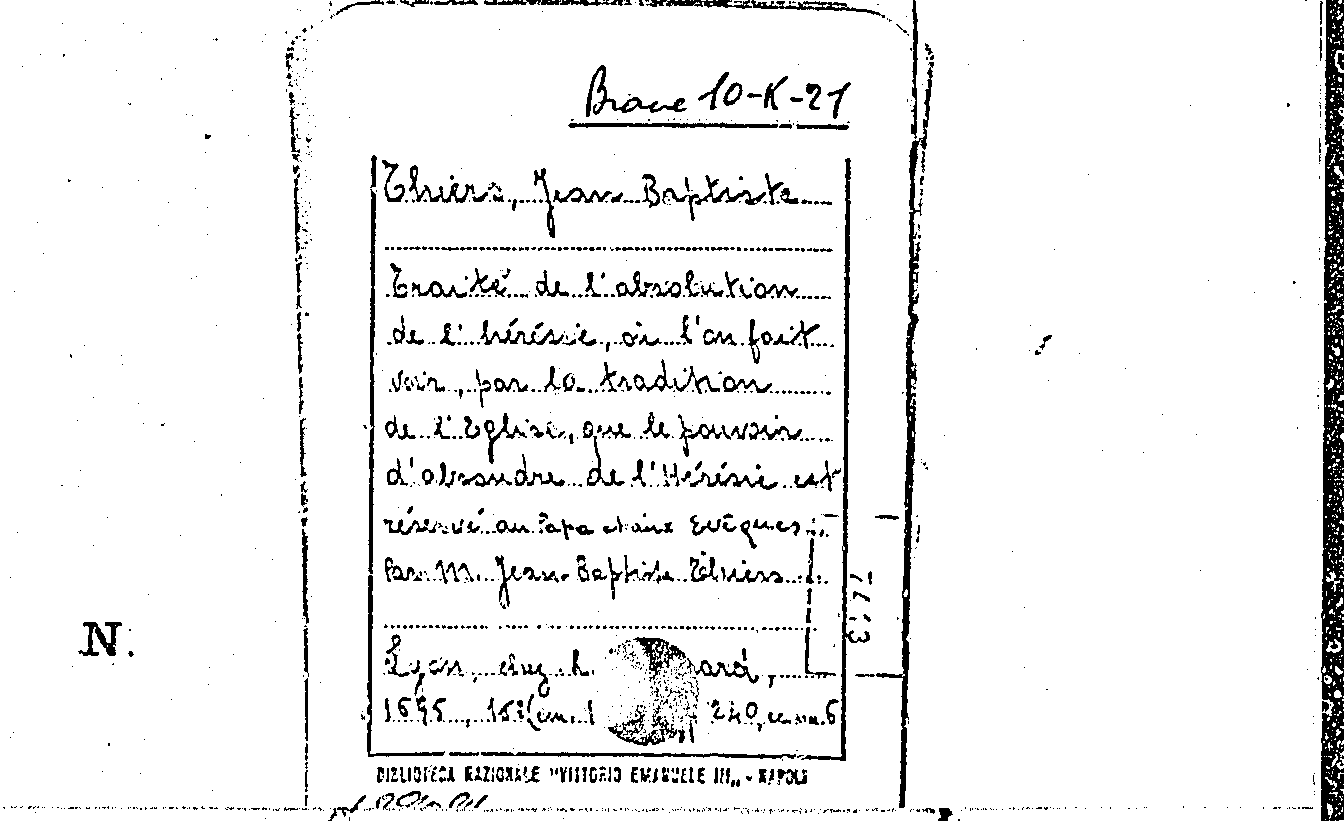 10-K-21
Thiers, Jean Baptiste
Traité de l'absolution
de l'hérésie, où l'on fait
voir, par la tradition
de l'Eglise, que le pouvoir
d'absoudre de l'Hérésie est
réservé au Pape et aux Evêques
Par M. Jean-Baptiste Thiers
N.
Lyon, chez L. ard,
1695, 15 240, 6
BIBLIOTECA NAZIONALE "VITTORIO EMANUELE III„ - NAPOLI